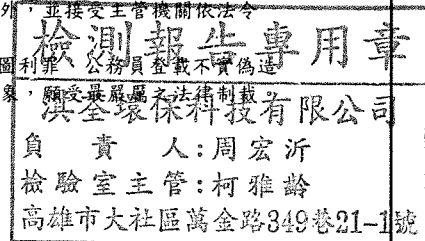 外，並接受主管機關依法令
檢測報告專用章
圖利罪 公務員登載不實偽造
象，願受最嚴厲之法律制裁。
淇全環保科技有限公司
負責人：周宏沂
檢驗室主管：柯雅齡
高雄市大社區萬金路349巷21-1號